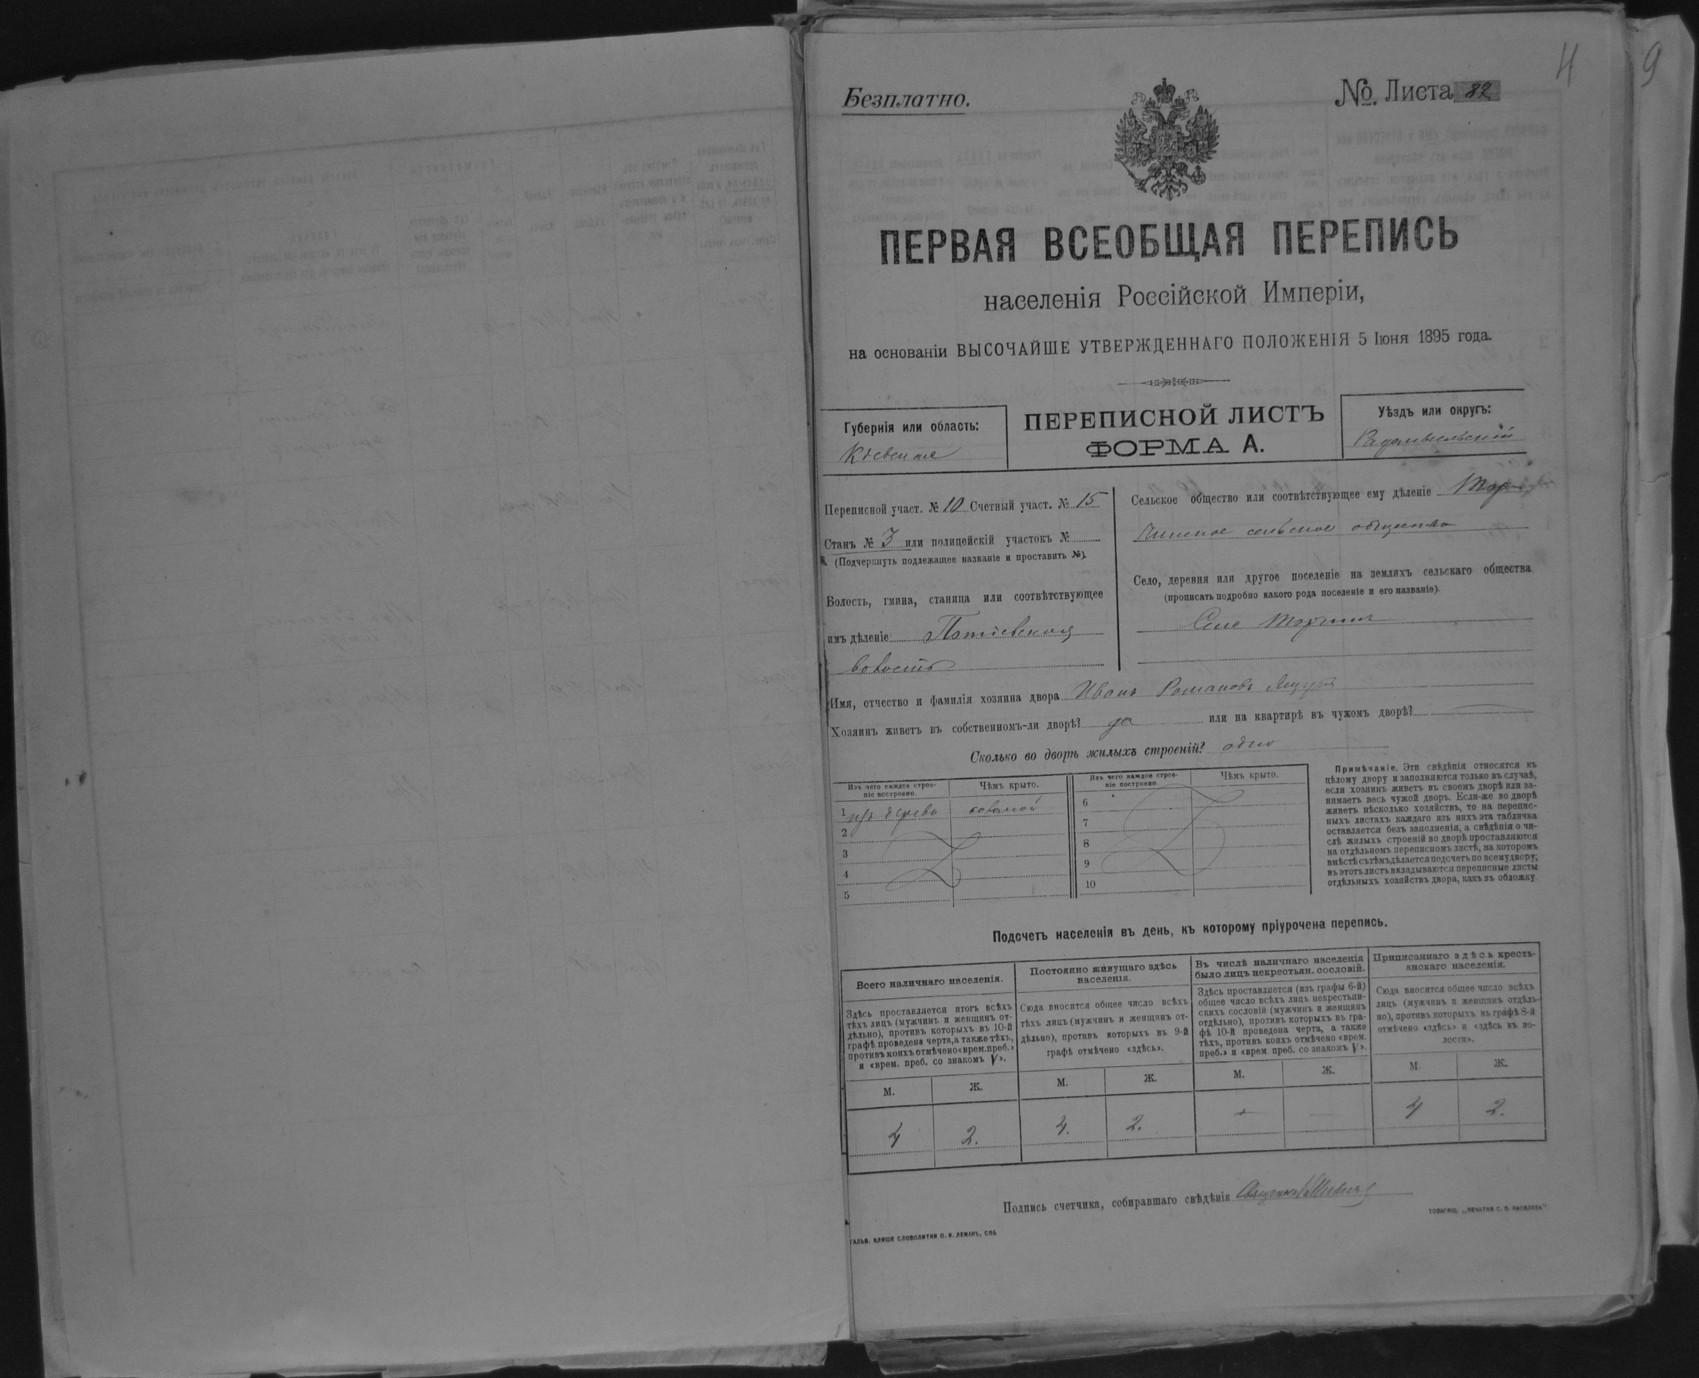 4
9
Безплатно.
№. Листа 82
ПЕРВАЯ ВСЕОБЩАЯ ПЕРЕПИСЬ
населенія Россійской Имперіи,
на основаніи ВЫСОЧАЙШЕ УТВЕРЖДЕННАГО ПОЛОЖЕНІЯ 5 Іюня 1895 года.
Губернія или область:
Кіевская
ПЕРЕПИСНОЙ ЛИСТЪ
ФОРМА А.
Уѣздъ или округъ:
Радомысльскій
Переписной участ. № 10 Счетный участ. № 15
Станъ № 3 или полицейскій участокъ №
(Подчеркнуть подлежащее названіе и проставить №).
Волость, гмина, станица или соотвѣтствующее
имъ дѣленіе Потіевская
волость
Сельское общество или соотвѣтствующее ему дѣленіе
сельское общество
Село, деревня или другое поселеніе на земляхъ сельскаго общества
(прописать подробно какого рода поселеніе и его названіе).
Село Торчинъ
Имя, отчество и фамилія хозяина двора Иванъ Романовъ
Хозяинъ живетъ въ собственномъ-ли дворѣ? да или на квартирѣ въ чужомъ дворѣ?
Сколько во дворѣ жилыхъ строеній? одно
Изъ чего каждое строеніе построено.
Чѣмъ крыто.
1 изъ дерева соломой
2
3
4
5
Изъ чего каждое строеніе построено.
Чѣмъ крыто.
6
7
8
9
10
Примѣчаніе. Эти свѣдѣнія относятся къ
цѣлому двору и заполняются только въ случаѣ,
если хозяинъ живетъ въ своемъ дворѣ или за-
нимаетъ весь чужой дворъ. Если-же во дворѣ
живетъ нѣсколько хозяйствъ, то на перепис-
ныхъ листахъ каждаго изъ нихъ эта табличка
оставляется безъ заполненія, а свѣдѣнія о чи-
слѣ жилыхъ строеній во дворѣ проставляются
на отдѣльномъ переписномъ листѣ, на которомъ
вмѣстѣ съ тѣмъ дѣлается подсчетъ по всему двору;
въ этотъ листъ вкладываются переписные листы
отдѣльныхъ хозяйствъ двора, какъ въ обложку.
Подсчетъ населенія въ день, къ которому пріурочена перепись.
Всего наличнаго населенія.
Здѣсь проставляется итогъ всѣхъ
тѣхъ лицъ (мужчинъ и женщинъ от-
дѣльно), противъ которыхъ въ 10-й
графѣ проведена черта, а также тѣхъ,
противъ коихъ отмѣчено «врем. преб.»
и «врем. преб. со знакомъ V».
М. Ж.
4 2.
Постоянно живущаго здѣсь
населенія.
Сюда вносится общее число всѣхъ
тѣхъ лицъ (мужчинъ и женщинъ от-
дѣльно), противъ которыхъ въ 9-й
графѣ отмѣчено «здѣсь».
М. Ж.
4. 2.
Въ числѣ наличнаго населенія
было лицъ некрестьян. сословій.
Здѣсь проставляется (изъ графы 6-й)
общее число всѣхъ лицъ некрестьян-
скихъ сословій (мужчинъ и женщинъ
отдѣльно), противъ которыхъ въ гра-
фѣ 10-й проведена черта, а также
тѣхъ, противъ коихъ отмѣчено «врем.
преб.» и «врем. преб. со знакомъ V».
М. Ж.
Приписаннаго здѣсь кресть-
янскаго населенія.
Сюда вносится общее число всѣхъ
лицъ (мужчинъ и женщинъ отдѣль-
но), противъ которыхъ въ графѣ 8-й
отмѣчено «здѣсь» и «здѣсь въ во-
лости».
М. Ж.
4 2.
Подпись счетчика, собиравшаго свѣдѣнія
ГАЛЬВ. КЛИШЕ СЛОВОЛИТНИ О. И. ЛЕМАНЪ, СПБ
ТОВАРИЩ. „ПЕЧАТНЯ С. П. ЯКОВЛЕВА"